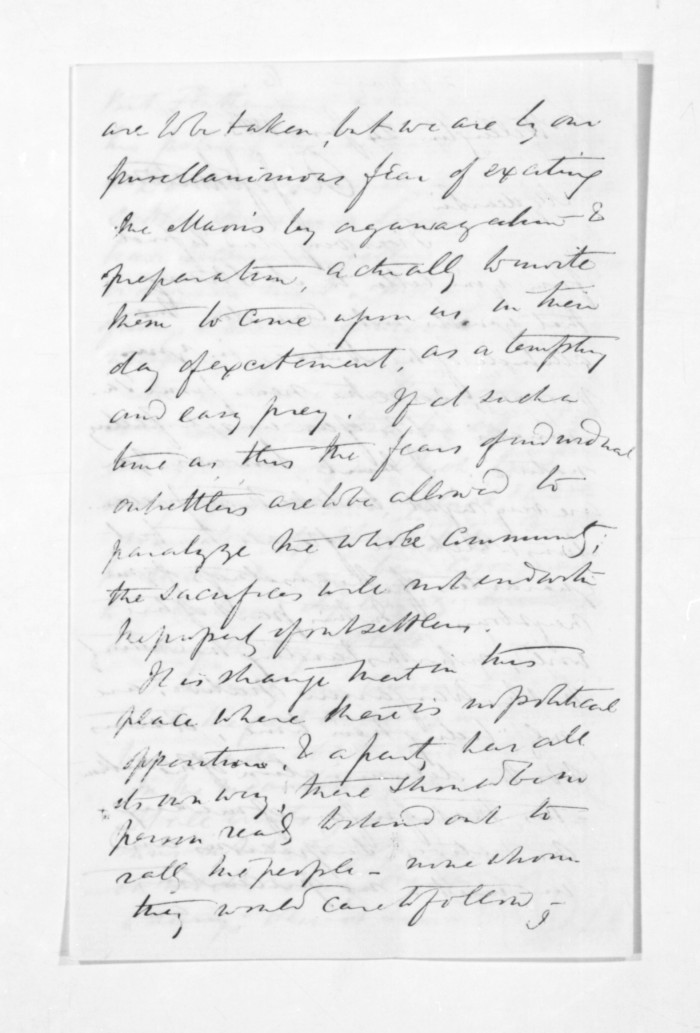 are to be taken, but we are by our
pusellanimous fear of exciting
the Maoris by organization &
preparation, actually to invite
them to come upon us, in their
day of excitement, as a tempting
and easy prey. If at such a
time as this the fears of individual
outsettlers are to be allowed to
paralyze the whole Community;
the sacrifices will not end with
the property of outsettlers.
It is strange that in this
place where there is no political
opposition, & a party has all
its own way, there should be no
person ready to stand out to
rally the people - none whom
they would care to follow,